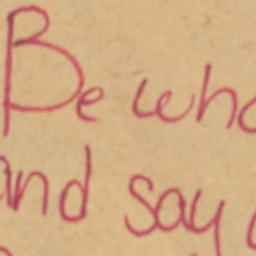 Be who
and say